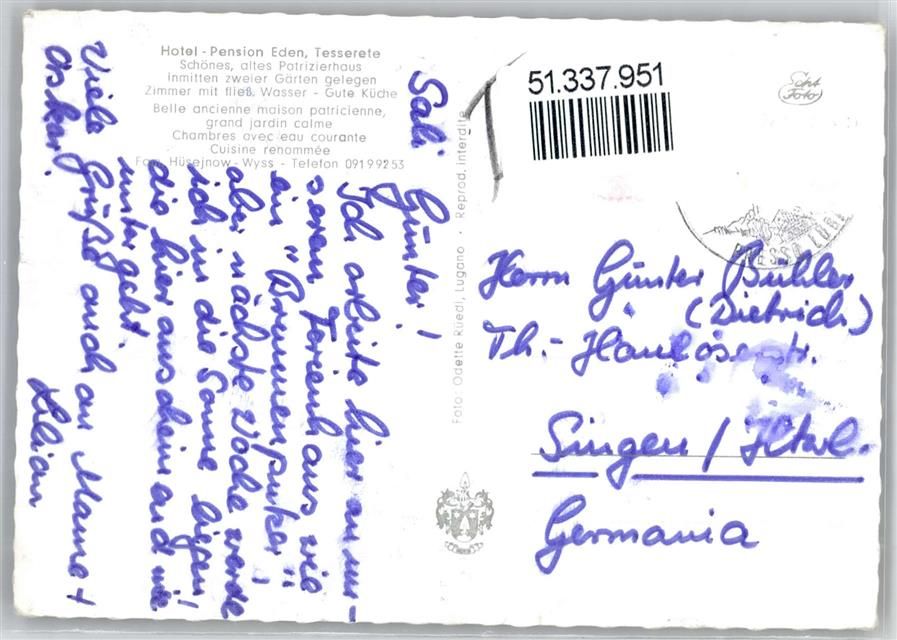 Hotel - Pension Eden, Tesserete
Schönes, altes Potrizierhaus
Inmitten zweier Gärten gelegen
Zimmer mit fließ. Wasser - Gute Küche
Belle ancienne maison patricienne,
grand jardin calme
Chambres avec eau courante
Cuisine renommée
Fam. Hüsejnow-Wyss - Telefon 091 9 92 53
Sali Günter!
Ich arbeite hier an un-
serem Ferienhaus wie
ein "Brunnenputzer"
aber nächste Woche werde
ich in die Sonne liegen!
die hier auch scheint und nie
untergeht.
Viele Grüße auch an Manne +
Oskar.
Lilian
Foto Odette Rüedi, Lugano · Reprod. interdite
51.337.951
Echt
Foto
Herrn Günter Bühler
(Dietrich)
Th.-
Singen / Htwl.
Germania